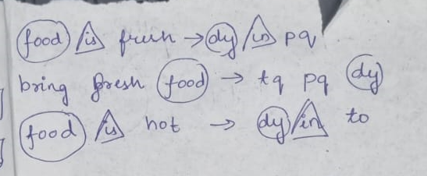 food is fresh → dy in pq
bring fresh food → tq pq dy
food is hot → dy in to